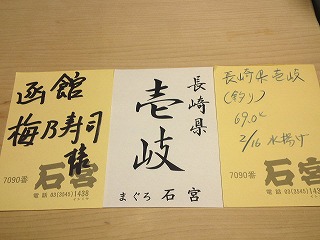 函館
梅乃寿司
様
7090番
石宮
電話 03(3545)1438
長崎県
壱岐
まぐろ 石宮
長崎県壱岐
(釣り)
69.0K
2/16 水揚げ
7090番
石宮
電話 03(3545)1438